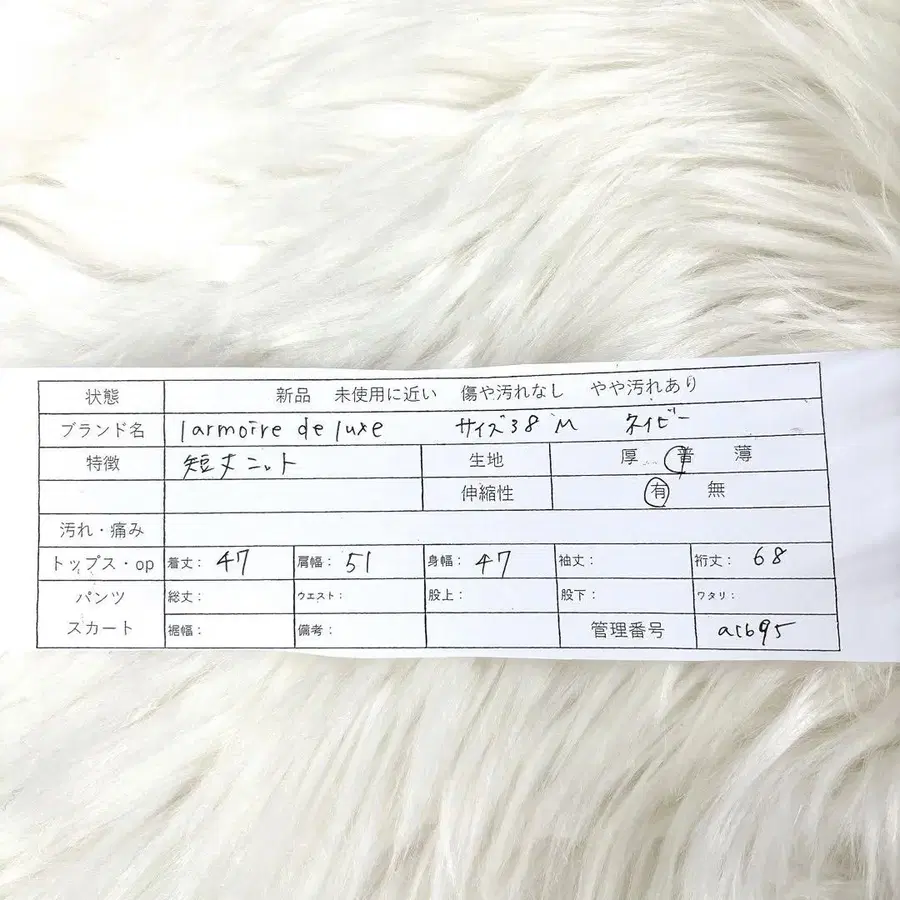 状態 新品 未使用に近い 傷や汚れなし やや汚れあり
ブランド名 larmoire de luxe サイズ38 M ネイビー
特徴 短丈ニット 生地 厚 普 薄
伸縮性 有 無
汚れ・痛み
トップス・op 着丈: 47 肩幅: 51 身幅: 47 袖丈: 裄丈: 68
パンツ 総丈: ウエスト: 股上: 股下: ワタリ:
スカート 裾幅: 備考: 管理番号 acb95